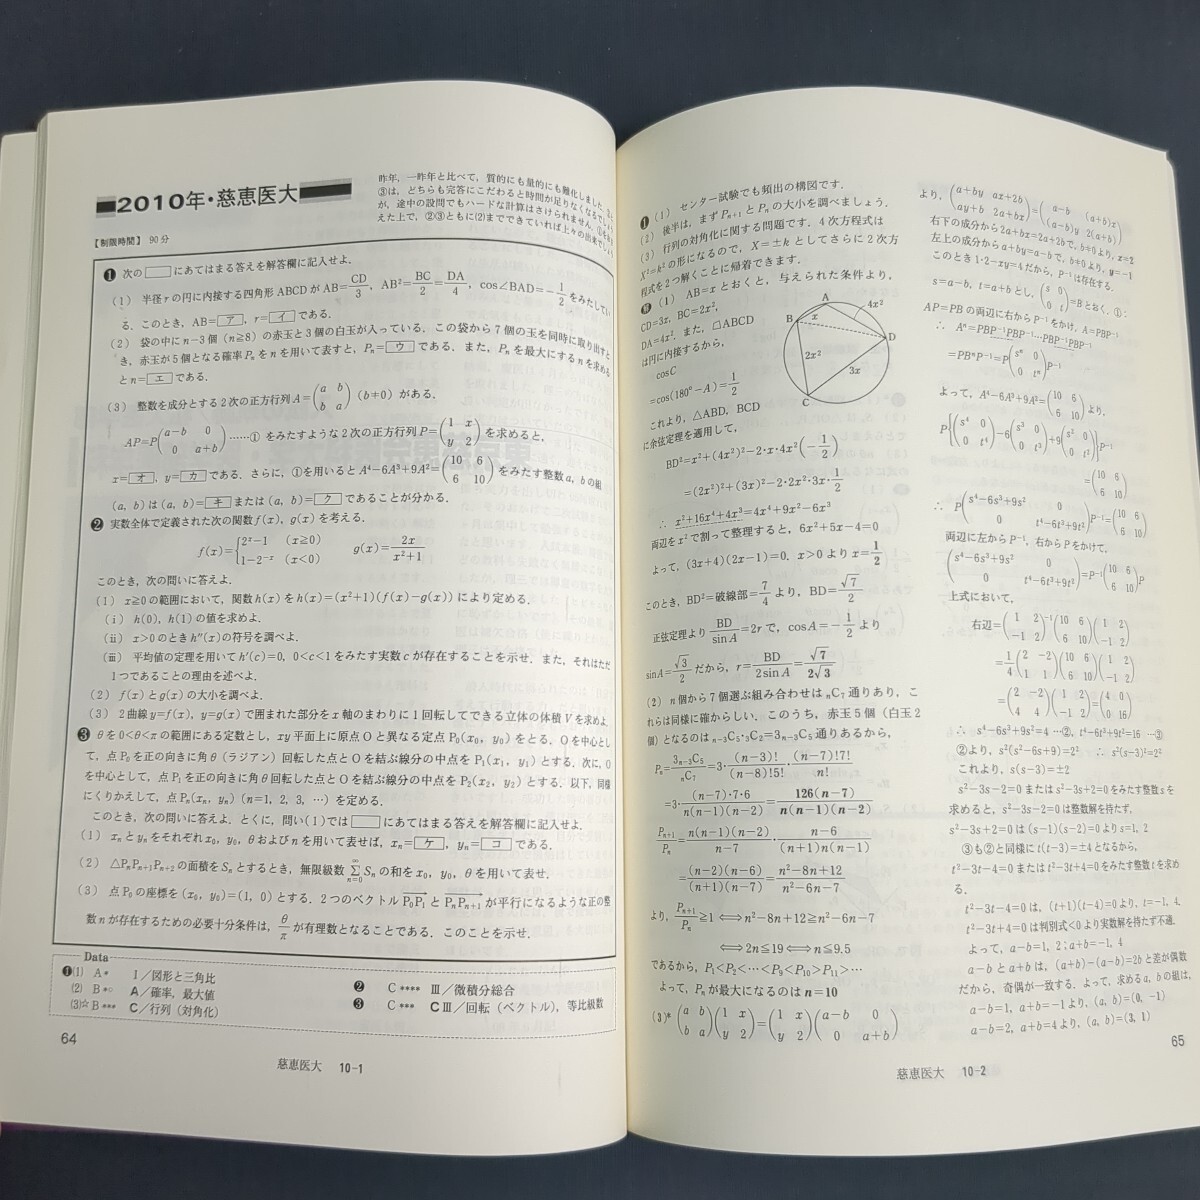 2010年・慈恵医大
昨年，一昨年と比べて，質的にも量的にも難化しました．
③は，どちらも完答にこだわると時間が足りなくなるでしょう
が，途中の設問でもハードな計算はさけられません．①を
えた上で，②③ともに(2)までできていれば上々の出来でしょう
【制限時間】 90分
❶ 次の□にあてはまる答えを解答欄に記入せよ．
(1) 半径rの円に内接する四角形ABCDがAB=CD/3, AB²=BC/2=DA/4, cos∠BAD=-1/2をみたしてい
る．このとき，AB=ア，r=イである．
(2) 袋の中にn-3個（n≧8）の赤玉と3個の白玉が入っている．この袋から7個の玉を同時に取り出すと
き，赤玉が5個となる確率Pₙをnを用いて表すと，Pₙ=ウである．また，Pₙを最大にするnを求める
とn=エである．
(3) 整数を成分とする2次の正方行列A=(a b / b a) (b≠0)がある．
AP=P(a-b 0 / 0 a+b) ……① をみたすような2次の正方行列P=(1 x / y 2)を求めると，
x=オ，y=カである．さらに，①を用いるとA⁴-6A³+9A²=(10 6 / 6 10)をみたす整数a, bの組
(a, b)は(a, b)=キまたは(a, b)=クであることが分かる．
❷ 実数全体で定義された次の関数f(x), g(x)を考える．
f(x)={2ˣ-1 (x≧0) / 1-2⁻ˣ (x<0) g(x)=2x/(x²+1)
このとき，次の問いに答えよ．
(1) x≧0の範囲において，関数h(x)をh(x)=(x²+1)(f(x)-g(x))により定める．
(ⅰ) h(0), h(1)の値を求めよ．
(ⅱ) x>0のときh″(x)の符号を調べよ．
(ⅲ) 平均値の定理を用いてh′(c)=0, 0<c<1をみたす実数cが存在することを示せ．また，それはただ
1つであることの理由を述べよ．
(2) f(x)とg(x)の大小を調べよ．
(3) 2曲線y=f(x), y=g(x)で囲まれた部分をx軸のまわりに1回転してできる立体の体積Vを求めよ．
❸ θを0<θ<πの範囲にある定数とし，xy平面上に原点Oと異なる定点P₀(x₀, y₀)をとる．Oを中心とし
て，点P₀を正の向きに角θ（ラジアン）回転した点とOを結ぶ線分の中点をP₁(x₁, y₁)とする．次に，O
を中心として，点P₁を正の向きに角θ回転した点とOを結ぶ線分の中点をP₂(x₂, y₂)とする．以下，同様
にくりかえして，点Pₙ(xₙ, yₙ) (n=1, 2, 3, …)を定める．
このとき，次の問いに答えよ．とくに，問い(1)では□にあてはまる答えを解答欄に記入せよ．
(1) xₙとyₙをそれぞれx₀, y₀, θおよびnを用いて表せば，xₙ=ケ，yₙ=コである．
(2) △PₙPₙ₊₁Pₙ₊₂の面積をSₙとするとき，無限級数Σ(n=0→∞)Sₙの和をx₀, y₀, θを用いて表せ．
(3) 点P₀の座標を(x₀, y₀)=(1, 0)とする．2つのベクトルP₀P₁とPₙPₙ₊₁が平行になるような正の整
数nが存在するための必要十分条件は，θ/πが有理数となることである．このことを示せ．
Data
❶(1) A* Ⅰ／図形と三角比
(2) B*○ A／確率，最大値
(3)☆B*** C／行列（対角化）
❷ C**** Ⅲ／微積分総合
❸ C*** CⅢ／回転（ベクトル），等比級数
64
慈恵医大 10-1
❶(1) センター試験でも頻出の構図です．
(2) 後半は，まずPₙ₊₁とPₙの大小を調べましょう．
(3) 行列の対角化に関する問題です．4次方程式は
X²=k²の形になるので，X=±kとしてさらに2次方
程式を2つ解くことに帰着できます．
解 (1) AB=xとおくと，与えられた条件より，
CD=3x, BC=2x²,
DA=4x²．また，□ABCD
は円に内接するから，
cosC
=cos(180°-A)=1/2
これより，△ABD, BCD
に余弦定理を適用して，
A
B
C
D
x
4x²
2x²
3x
BD²=x²+(4x²)²-2・x・4x²(-1/2)
=(2x²)²+(3x)²-2・2x²・3x・1/2
∴ x²+16x⁴+4x³=4x⁴+9x²-6x³
両辺をx²で割って整理すると，6x²+5x-4=0
よって，(3x+4)(2x-1)=0．x>0よりx=1/2
このとき，BD²=破線部=7/4より，BD=√7/2
正弦定理よりBD/sinA=2rで，cosA=-1/2より
sinA=√3/2だから，r=BD/2sinA=√7/2√3
(2) n個から7個選ぶ組み合わせはₙC₇通りあり，こ
れらは同様に確からしい．このうち，赤玉5個（白玉2
個）となるのはₙ₋₃C₅・₃C₂=3ₙ₋₃C₅通りあるから，
Pₙ=3ₙ₋₃C₅/ₙC₇=3・(n-3)!/(n-8)!5!・(n-7)!7!/n!
=3・(n-7)・7・6/n(n-1)(n-2)=126(n-7)/n(n-1)(n-2)
Pₙ₊₁/Pₙ=n(n-1)(n-2)/(n-7)・(n-6)/(n+1)n(n-1)
=(n-2)(n-6)/(n+1)(n-7)=(n²-8n+12)/(n²-6n-7)
より，Pₙ₊₁/Pₙ≧1⟺n²-8n+12≧n²-6n-7
⟺2n≦19⟺n≦9.5
であるから，P₁<P₂<…<P₉<P₁₀>P₁₁>…
よって，Pₙが最大になるのはn=10
(3)* (a b / b a)(1 x / y 2)=(1 x / y 2)(a-b 0 / 0 a+b)
より，(a+by ax+2b / ay+b 2a+bx)=(a-b (a+b)x / (a-b)y 2(a+b))
右下の成分から2a+bx=2a+2bで，b≠0より，x=2
左上の成分からa+by=a-bで，b≠0より，y=-1
このとき1・2-xy=4だから，P⁻¹は存在する．
s=a-b, t=a+bとし，(s 0 / 0 t)=Bとおく．①：
AP=PBの両辺に右からP⁻¹をかけ，A=PBP⁻¹
∴ Aⁿ=PBP⁻¹PBP⁻¹…PBP⁻¹PBP⁻¹
=PBⁿP⁻¹=P(sⁿ 0 / 0 tⁿ)P⁻¹
よって，A⁴-6A³+9A²=(10 6 / 6 10)より，
P{(s⁴ 0 / 0 t⁴)-6(s³ 0 / 0 t³)+9(s² 0 / 0 t²)}P⁻¹
=(10 6 / 6 10)
∴ P(s⁴-6s³+9s² 0 / 0 t⁴-6t³+9t²)P⁻¹=(10 6 / 6 10)
両辺に左からP⁻¹，右からPをかけて，
(s⁴-6s³+9s² 0 / 0 t⁴-6t³+9t²)=P⁻¹(10 6 / 6 10)P
上式において，
右辺=(1 2 / -1 2)⁻¹(10 6 / 6 10)(1 2 / -1 2)
=1/4(2 -2 / 1 1)(10 6 / 6 10)(1 2 / -1 2)
=(2 -2 / 4 4)(1 2 / -1 2)=(4 0 / 0 16)
∴ s⁴-6s³+9s²=4 …②，t⁴-6t³+9t²=16 …③
②より，s²(s²-6s+9)=2² ∴ s²(s-3)²=2²
これより，s(s-3)=±2
s²-3s-2=0またはs²-3s+2=0をみたす整数sを
求めると，s²-3s-2=0は整数解を持たず．
s²-3s+2=0は(s-1)(s-2)=0よりs=1, 2
③も②と同様にt(t-3)=±4となるから，
t²-3t-4=0またはt²-3t+4=0をみたす整数tを求め
る．
t²-3t-4=0は，(t+1)(t-4)=0より，t=-1, 4
t²-3t+4=0は判別式<0より実数解を持たず不適．
よって，a-b=1, 2；a+b=-1, 4
a-bとa+bは，(a+b)-(a-b)=2bと差が偶数
だから，奇偶が一致する．よって，求めるa, bの組は，
a-b=1, a+b=-1より，(a, b)=(0, -1)
a-b=2, a+b=4より，(a, b)=(3, 1)
65
慈恵医大 10-2